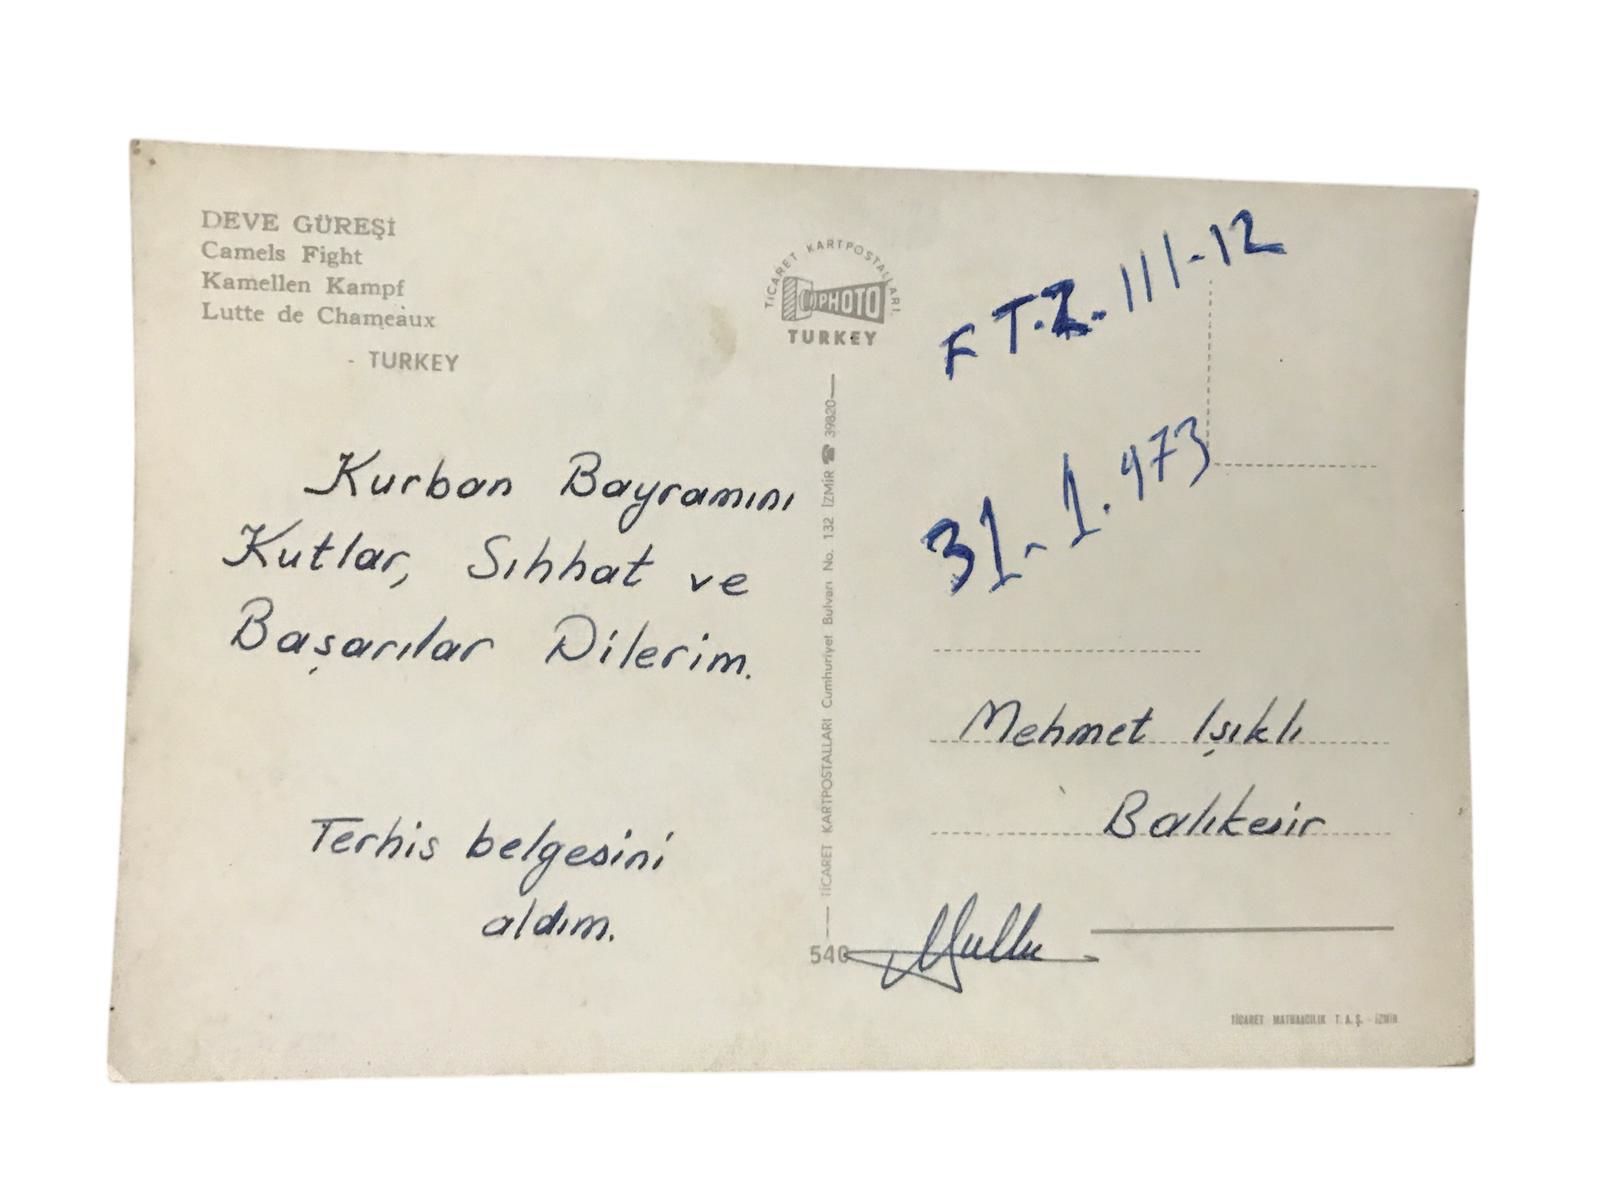 DEVE GÜREŞİ
Camels Fight
Kamellen Kampf
Lutte de Chameaux
- TURKEY
Kurban Bayramını
Kutlar, Sıhhat ve
Başarılar Dilerim.
Terhis belgesini
aldım.
TİCARET KARTPOSTALLARI.
PHOTO
TURKEY
TİCARET KARTPOSTALLARI Cumhuriyet Bulvarı No. 132 İZMİR ☎ 39820
540
F T.Z. 111-12
31.1.973
Mehmet Işıklı
Balıkesir
TİCARET MATBAACILIK T. A. Ş. - İZMİR